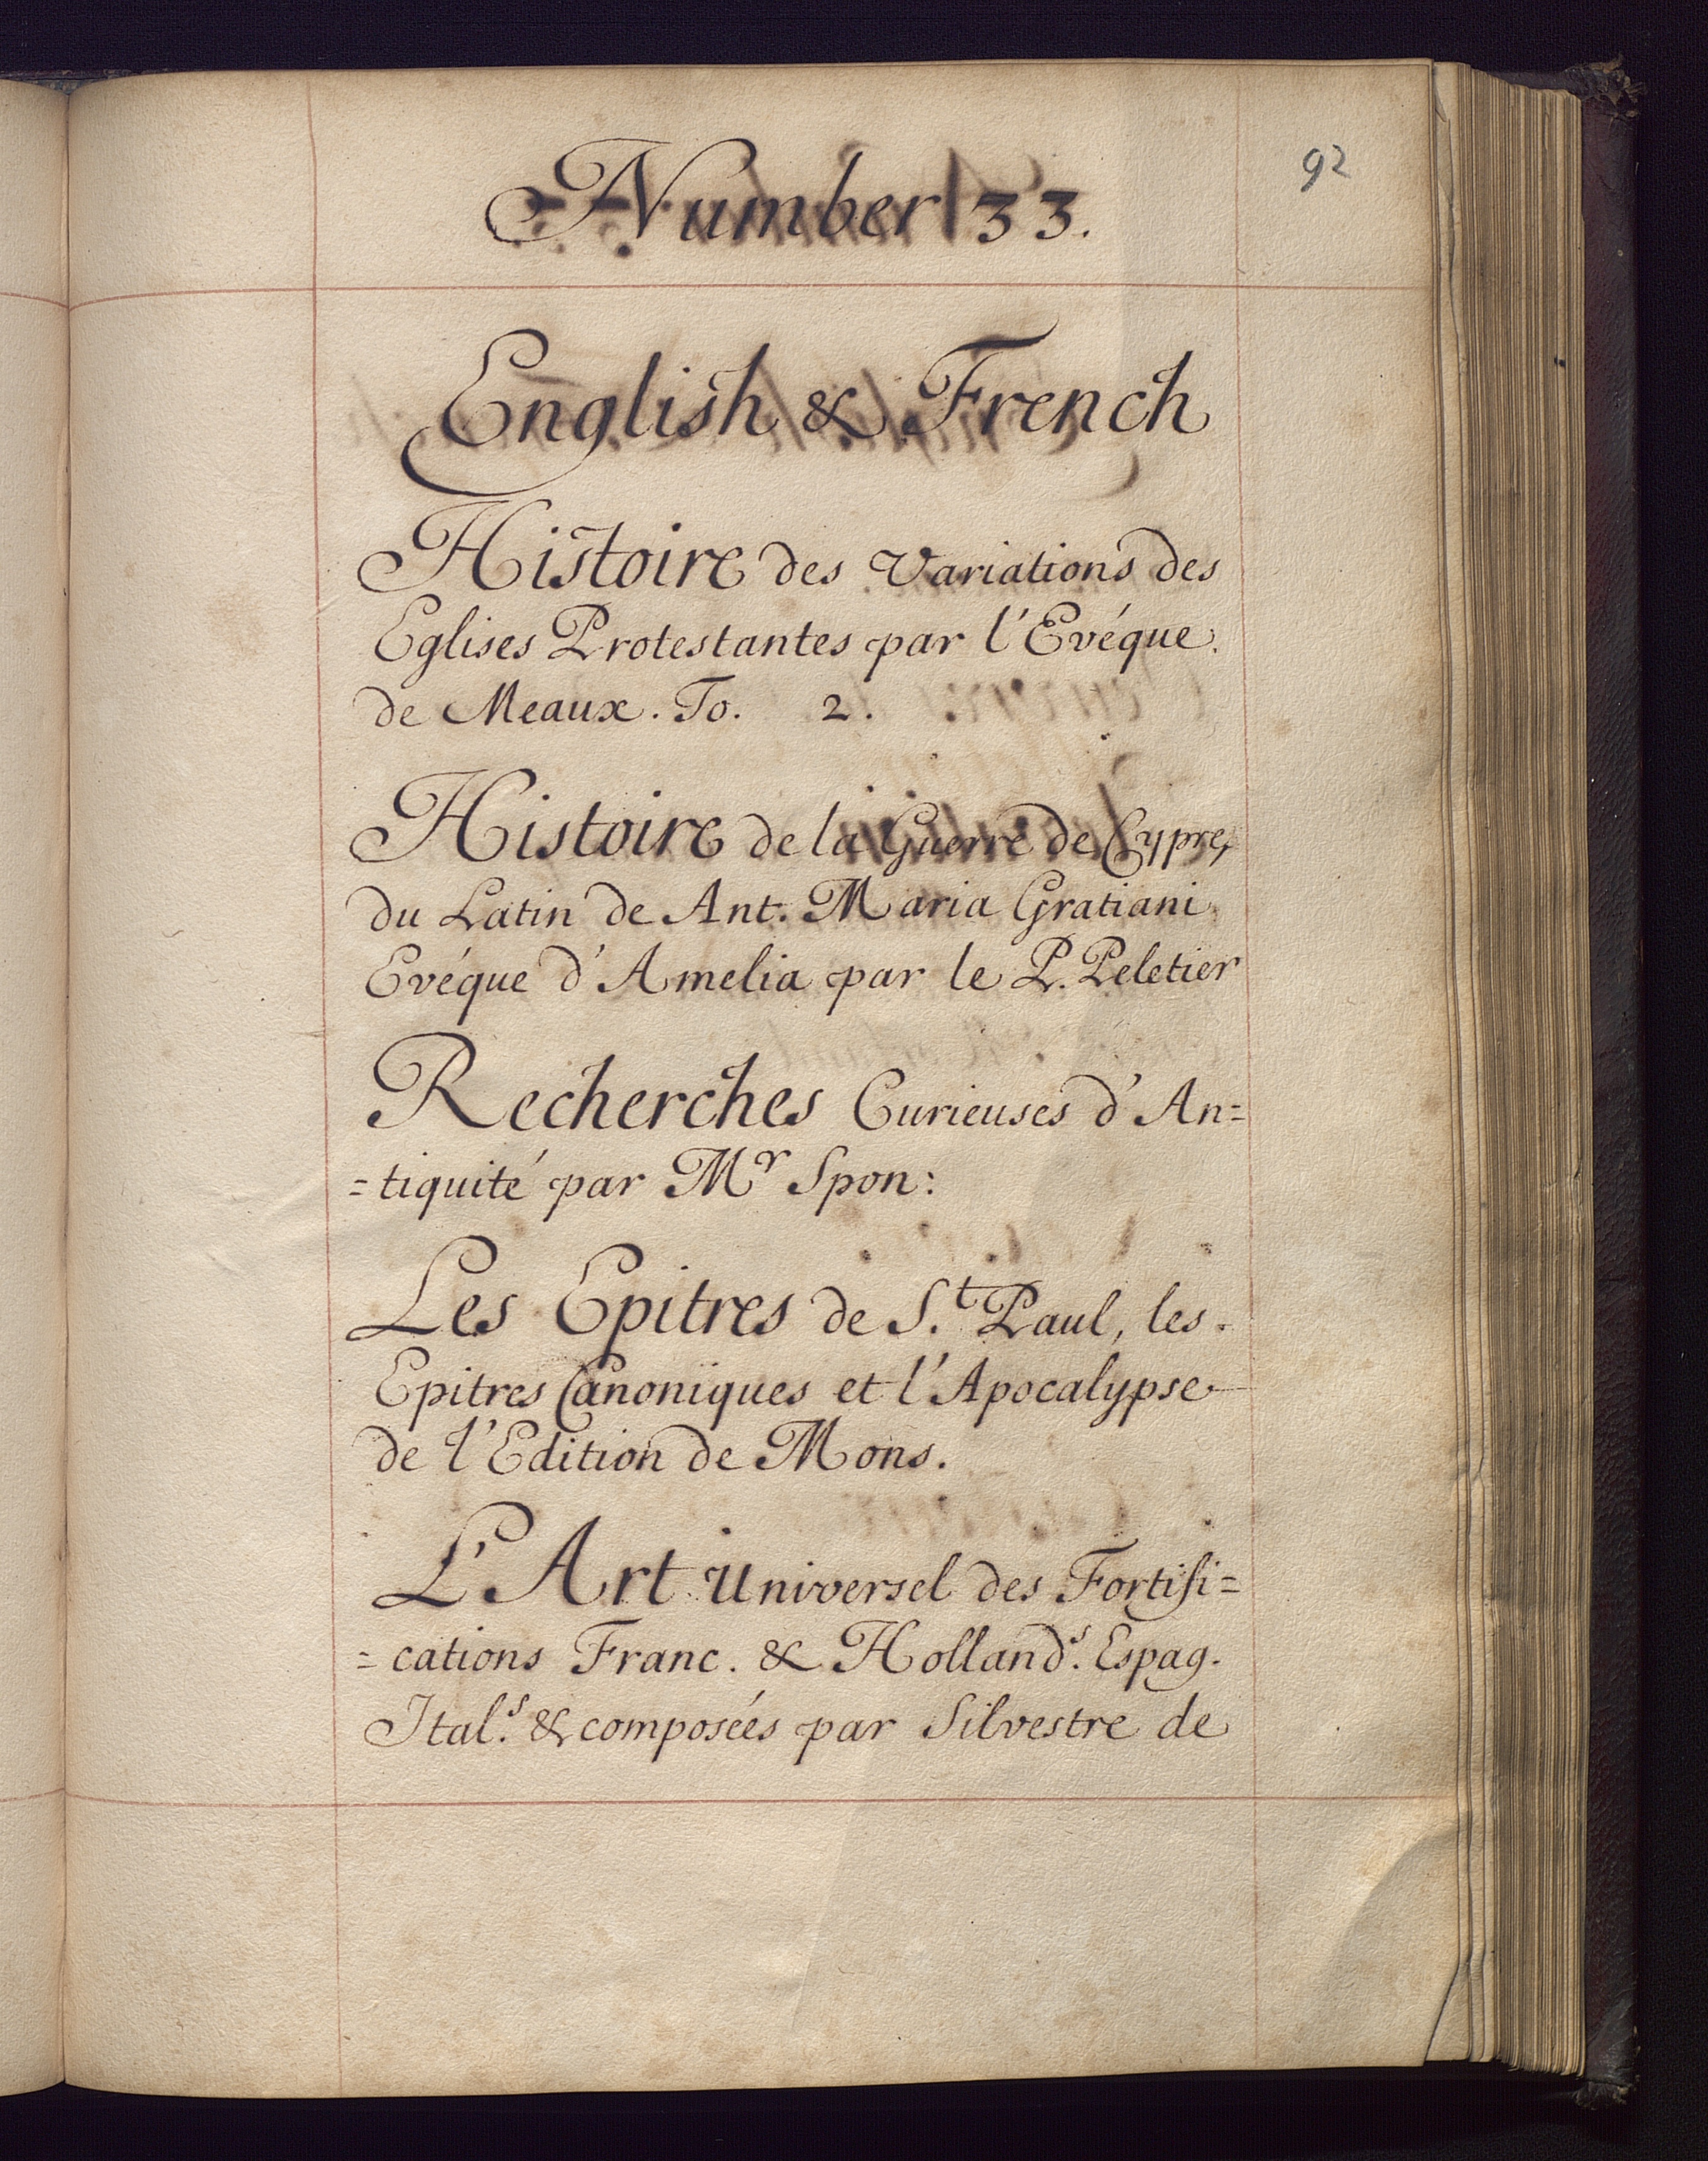 92
Number 33.
English & French
Histoire des Variations des
Eglises Protestantes par l'Evéque.
de Meaux. To. 2.
Histoire de la Guerre de Cypre,
du Latin de Ant. Maria Gratiani
Evéque d'Amelia par le P. Peletier
Recherches Curieuses d'An=
=tiquité par Mr Spon:
Les Epitres de St. Paul, les
Epitres Canoniques et l'Apocalypse
de l'Edition de Mons.
L'Art Universel des Fortifi=
=cations Franc. & Holland.s Espag.
Ital.s & composées par Silvestre de